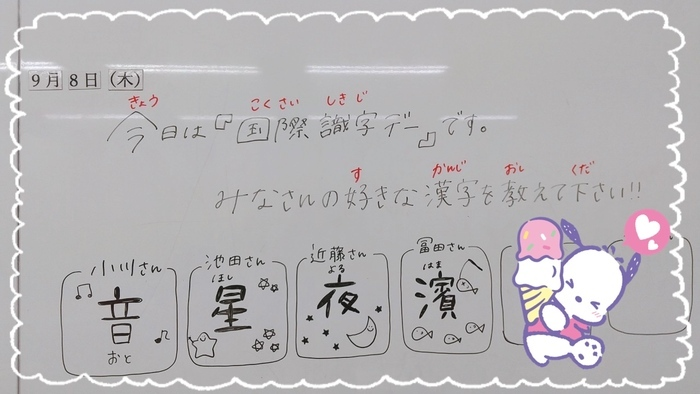 9月8日(木)
きょう こくさい しきじ
今日は『国際識字デー』です。
す かんじ おし くだ
みなさんの好きな漢字を教えて下さい!!
小川さん 池田さん 近藤さん 冨田さん
ほし よる はま
音 星 夜 濱
おと